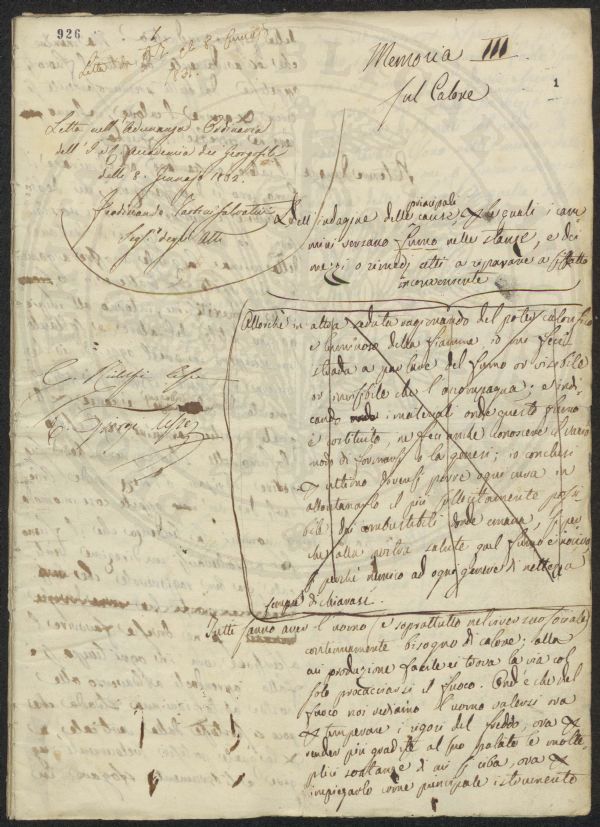 926
Letta il dì 8 Gennajo
1832.
Memoria III
sul Calore
1
Letta nell'Adunanza Ordinaria
dell'I. e R. Accademia dei Georgofili
delle 8. Gennajo 1832.
Ferdinando Tartini Salvatici
Segr. degli Atti
Dell'indagine delle principali cause, per le quali i cam-
mini versano fumo nelle stanze, e dei
mezzi o rimedj atti a riparare a siffatto
inconveniente
Allorchè in altra seduta ragionando del poter calorifico
e luminoso della fiamma, io mi feci
strada a parlare del fumo or visibile
or invisibile che l'accompagna; e indi-
cando i materiali onde questo fumo
è costituito, ne feci anche conoscere il vario
modo di formarsi e la genesi; io conclusi
doversi porre ogni cura in
allontanarlo il più sollecitamente possi-
bile dai combustibili donde emana, sì per-
chè alla nostra salute quel fumo è nocivo,
sì perchè nemico ad ogni genere di nettezza
Tutti sanno aver l'uomo (e soprattutto nell'invernal stagione)
continuamente bisogno di calore; alla
cui produzione facile ei trova la via col
solo procacciarsi il fuoco. Ond'è che del
fuoco noi vediamo l'uomo valersi ora
per temperare i rigori del freddo, ora per
render più gradite al suo palato le molte-
plici sostanze di cui si ciba, ora per
impiegarlo come principale istrumento